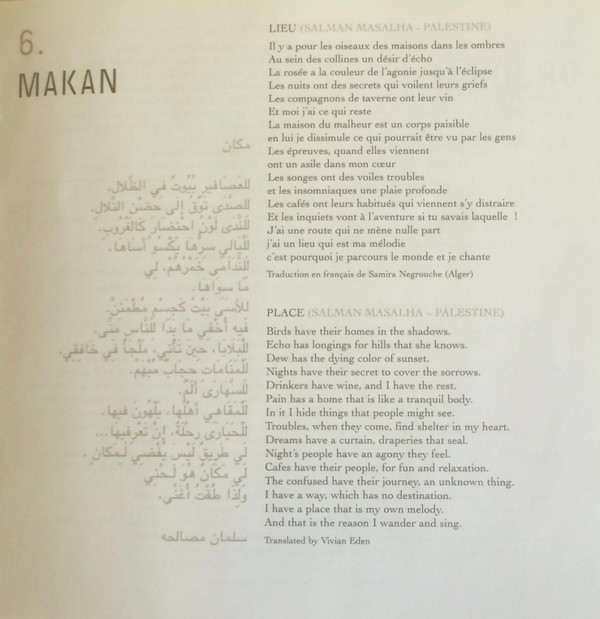 6.
MAKAN
مكان
للعصافير بُيُوتٌ في الظّلالِ.
للصّدى تَوْقٌ إلى حضْن التّلالِ.
للنّدى لَوْنُ احْتضارٍ كَالغُروبِ.
للّيالي سرّها يَكْسُو أساها.
للنّدامى خَمْرُهُمْ، لي
ما سواها.
للأسَى بَيْتٌ كَجِسْمٍ مُطْمَئِنّ.
فيه أُخْفي ما بَدَا للنّاسِ منّي.
للْبَلايا، حينَ تَأتي، مَلْجَأٌ في خافِقِي.
للْمَنامات حجابٌ مُبْهَم.
للسّهارَى ألَمٌ.
للْمَقاهي أهْلُها، يلْهُونَ فيها.
للْحيارَى رحْلَةٌ، إنْ تَعْرفيها...
لي طريقٌ لَيْسَ يُفْضي لمكان.
لي مكانٌ هُوَ لَحْني
ولذا طُفْتُ أُغَنّي.
سلمان مصالحه
LIEU (SALMAN MASALHA - PALESTINE)
Il y a pour les oiseaux des maisons dans les ombres
Au sein des collines un désir d'écho
La rosée a la couleur de l'agonie jusqu'à l'éclipse
Les nuits ont des secrets qui voilent leurs griefs
Les compagnons de taverne ont leur vin
Et moi j'ai ce qui reste
La maison du malheur est un corps paisible
en lui je dissimule ce qui pourrait être vu par les gens
Les épreuves, quand elles viennent
ont un asile dans mon cœur
Les songes ont des voiles troubles
et les insomniaques une plaie profonde
Les cafés ont leurs habitués qui viennent s'y distraire
Et les inquiets vont à l'aventure si tu savais laquelle !
J'ai une route qui ne mène nulle part
j'ai un lieu qui est ma mélodie
c'est pourquoi je parcours le monde et je chante
Traduction en français de Samira Negrouche (Alger)
PLACE (SALMAN MASALHA - PALESTINE)
Birds have their homes in the shadows.
Echo has longings for hills that she knows.
Dew has the dying color of sunset.
Nights have their secret to cover the sorrows.
Drinkers have wine, and I have the rest.
Pain has a home that is like a tranquil body.
In it I hide things that people might see.
Troubles, when they come, find shelter in my heart.
Dreams have a curtain, draperies that seal.
Night's people have an agony they feel.
Cafes have their people, for fun and relaxation.
The confused have their journey, an unknown thing.
I have a way, which has no destination.
I have a place that is my own melody.
And that is the reason I wander and sing.
Translated by Vivian Eden